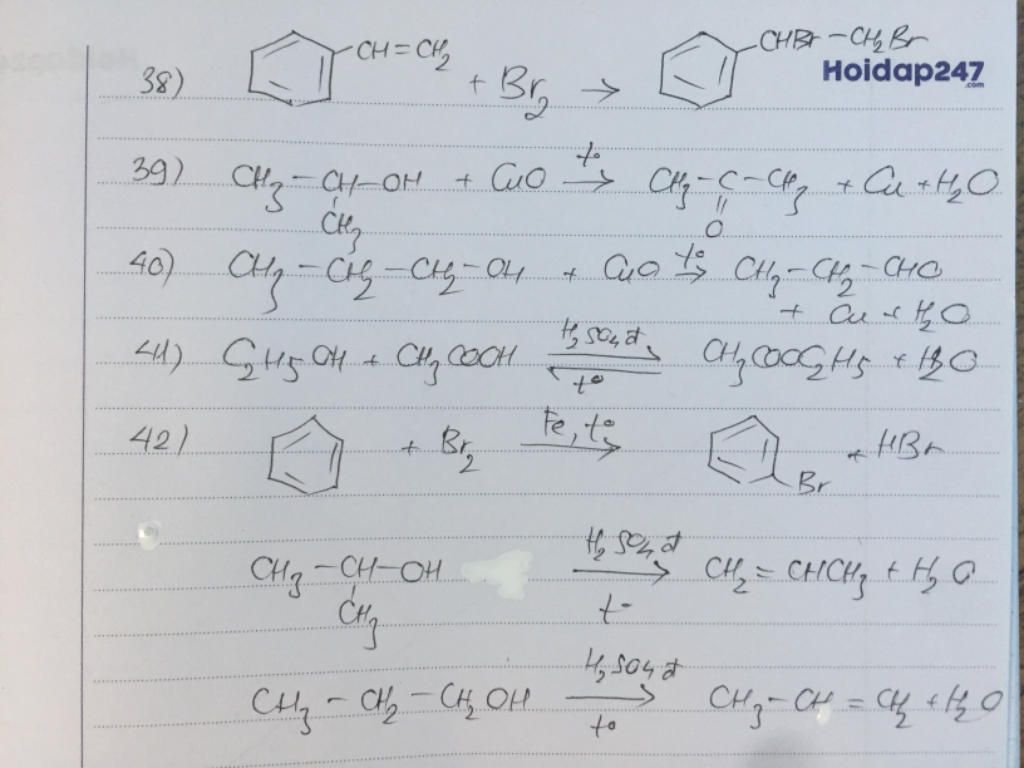 38) CH=CH₂ + Br₂ → CHBr-CH₂Br
Hoidap247
.com
39) CH₃-CH-OH + CuO →(t°) CH₃-C-CH₃ + Cu + H₂O
CH₃ O
40) CH₃-CH₂-CH₂-OH + CuO →(t°) CH₃-CH₂-CHO
+ Cu + H₂O
41) C₂H₅OH + CH₃COOH ⇌(H₂SO₄ đ, t°) CH₃COOC₂H₅ + H₂O
42) + Br₂ →(Fe, t°) Br + HBr
CH₃-CH-OH →(H₂SO₄ đ, t°) CH₂=CHCH₃ + H₂O
CH₃
CH₃-CH₂-CH₂OH →(H₂SO₄ đ, t°) CH₃-CH=CH₂ + H₂O